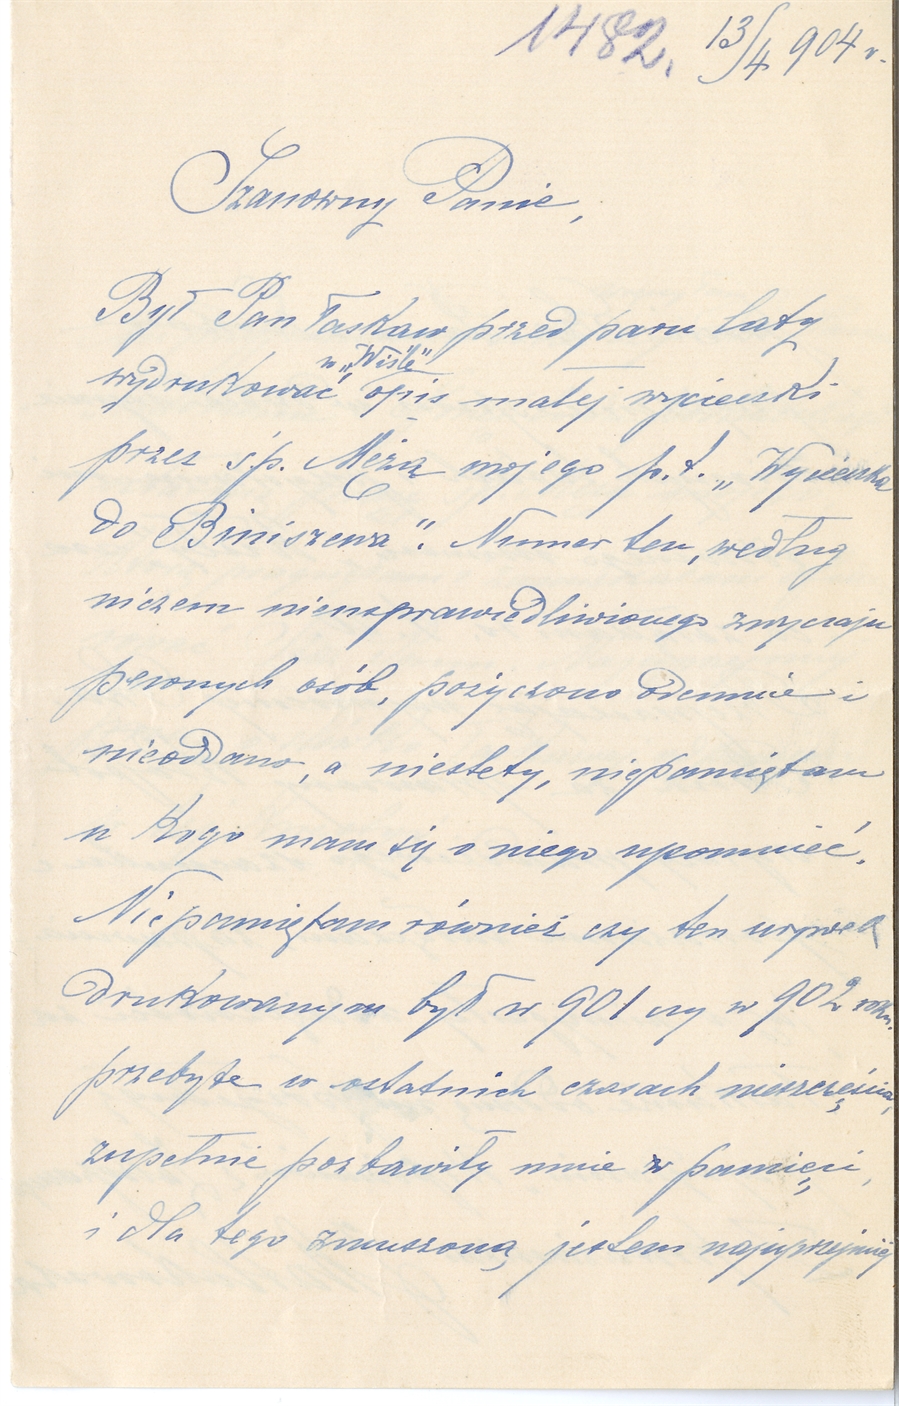 1482. 13/4 904 r.
Szanowny Panie,
Był Pan łaskaw przed paru laty
w „Wiśle”
wydrukować opis małej wycieczki
przez ś.p. Męża mojego p.t. „Wycieczka
do Biniszewa”. Numer ten, według
niczem nieusprawiedliwionego zwyczaju
pewnych osób, pożyczono odemnie i
nieoddano, a niestety, niepamiętam
u kogo mam się o niego upomnieć.
Niepamiętam również czy ten urywek
drukowanym był w 901 czy w 902 roku.
przebyte w ostatnich czasach nieszczęścia,
zupełnie pozbawiły mnie pamięci,
i dla tego zmuszoną jestem najuprzejmiej